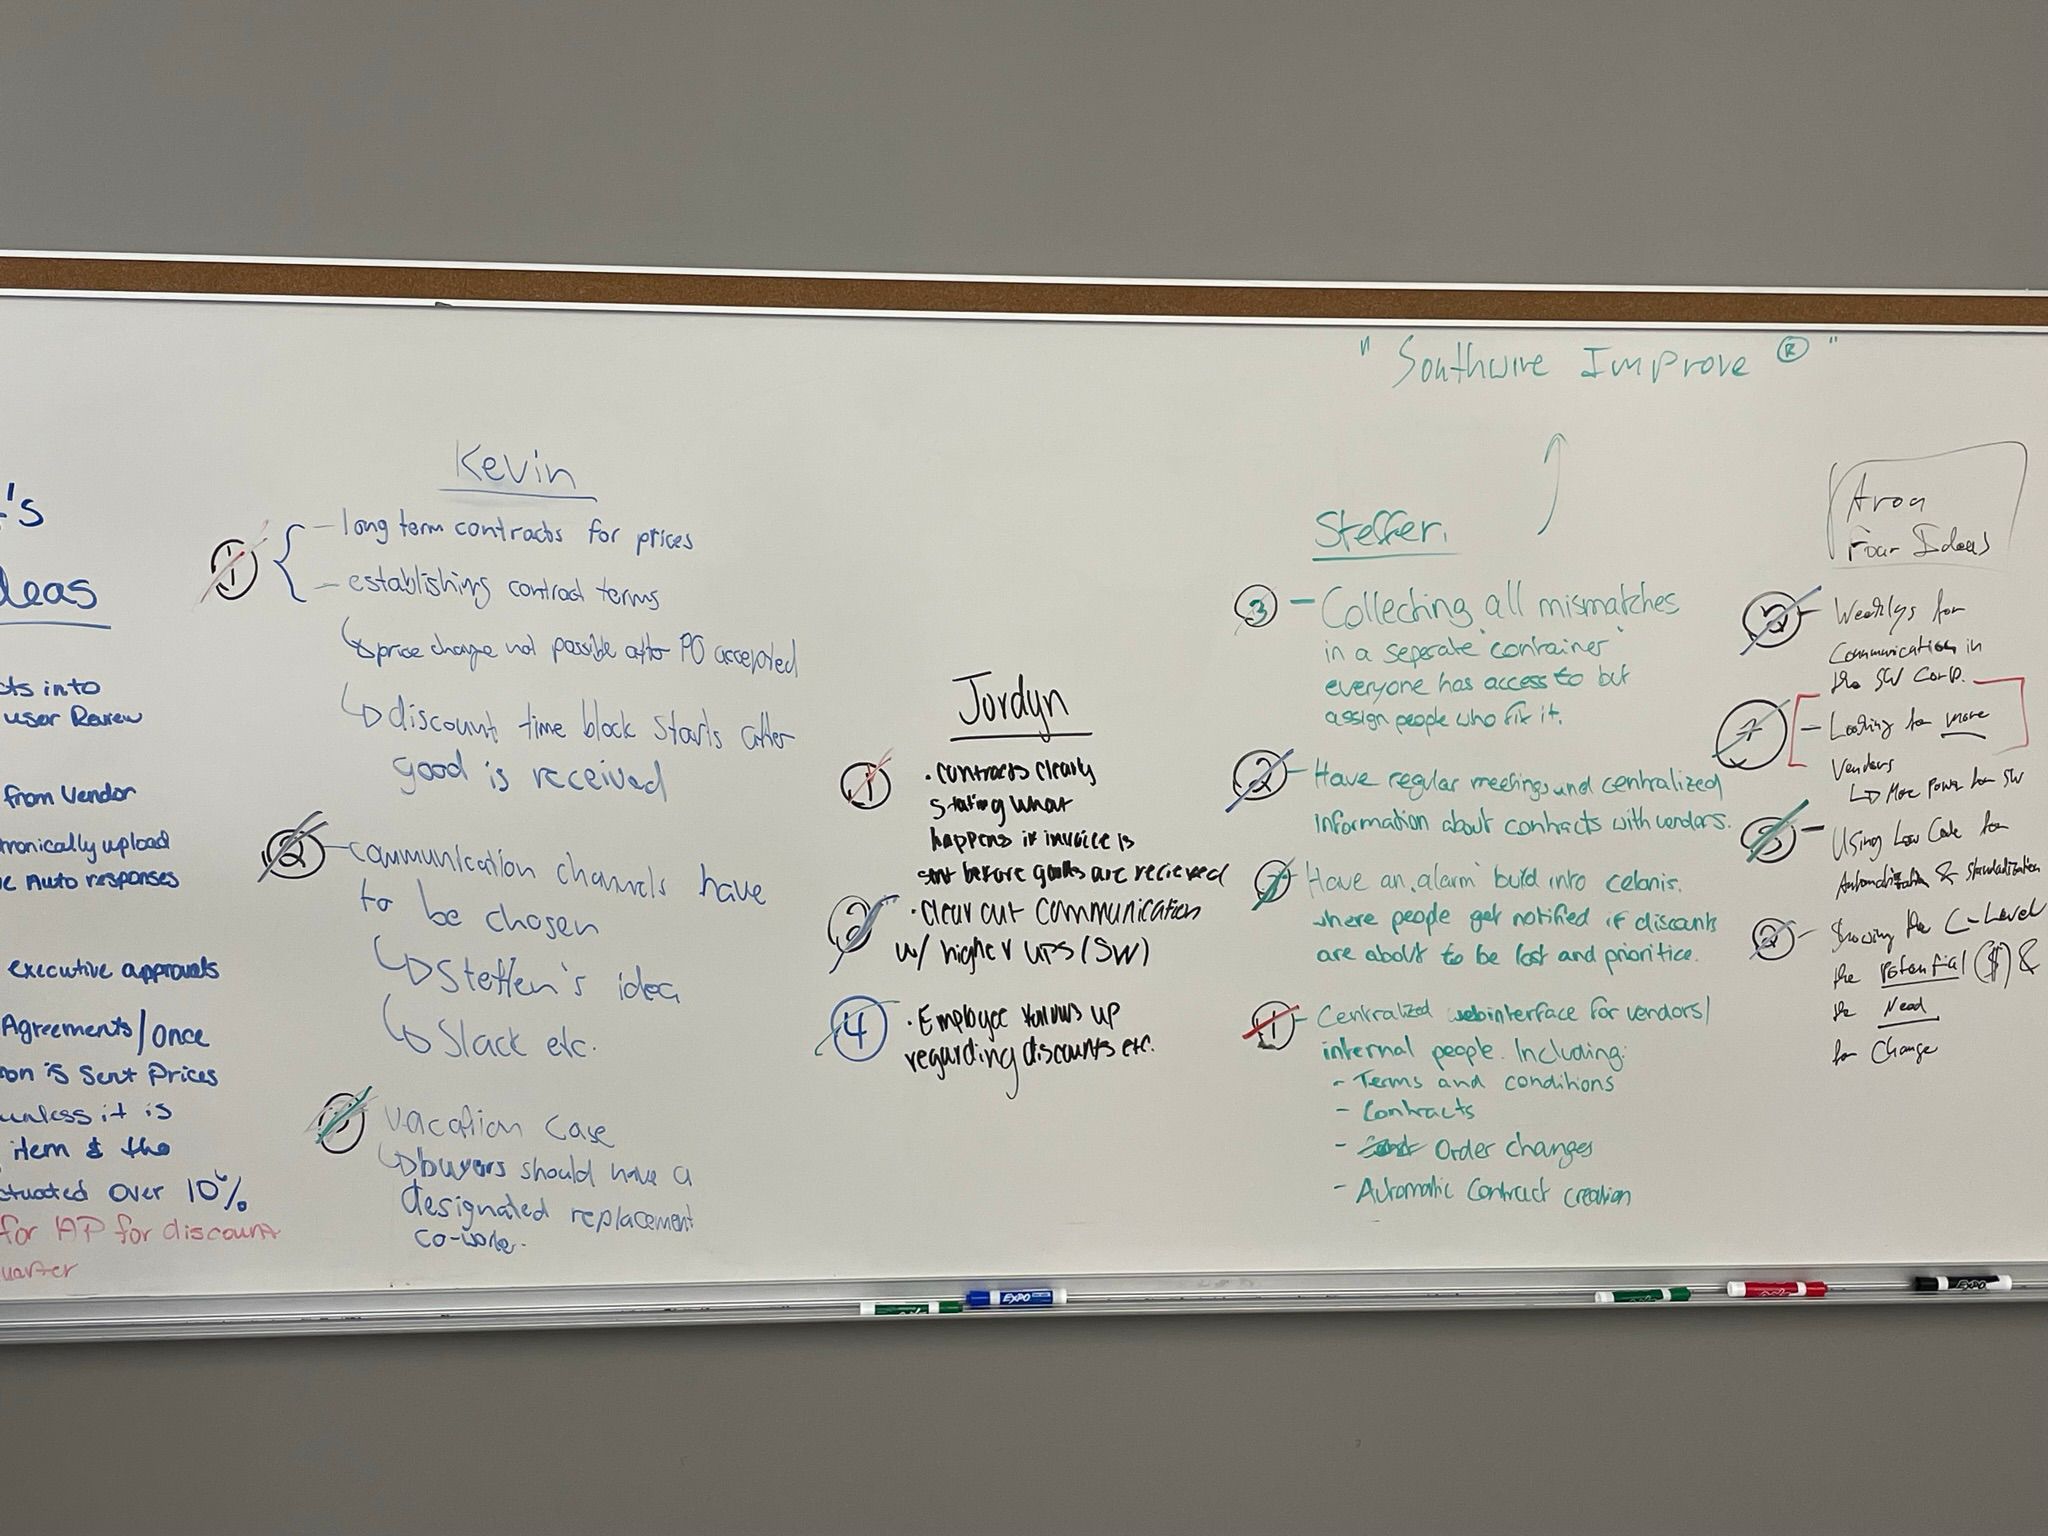 t's
deas
cts into
user Review
from Vendor
tronically upload
Auto responses
executive approvals
Agreements/Once
on is Sent Prices
unless it is
item & the
ctuated over 10%
for AP for discount
uarter
Kevin
1 - long term contracts for prices
- establishing contract terms
↳ price change not possible after PO accepted
↳ discount time block starts after
good is received
2 - communication channels have
to be chosen
↳ Steffen's idea
↳ Slack etc.
vacation case
↳ buyers should have a
designated replacement
co-worker.
Jordyn
1 • contracts clearly
stating what
happens if invoice is
sent before goods are recieved
2 • Clear cut communication
w/ higher ups (SW)
4 • Employee follows up
regarding discounts etc.
" Southwire Improve ® "
Steffen.
3 - Collecting all mismatches
in a seperate "container"
everyone has access to but
assign people who fix it.
2 - Have regular meetings und centralized
information about contracts with vendors.
Have an "alarm" build into celonis.
where people get notified if discounts
are about to be lost and prioritice.
1 - Centralized webinterface for vendors/
internal people. Including:
- Terms and conditions
- Contracts
- Order changes
- Automatic contract creation
Aron
Four Ideas
- Weeklys for
Communication in
the SW Corp.
- Looking for more
Vendors
↳ More Power for SW
- Using Low Code for
& Standardization
2 - Showing the C-Level
the Potential ($) &
the Need
for Change
EXPO
EXPO